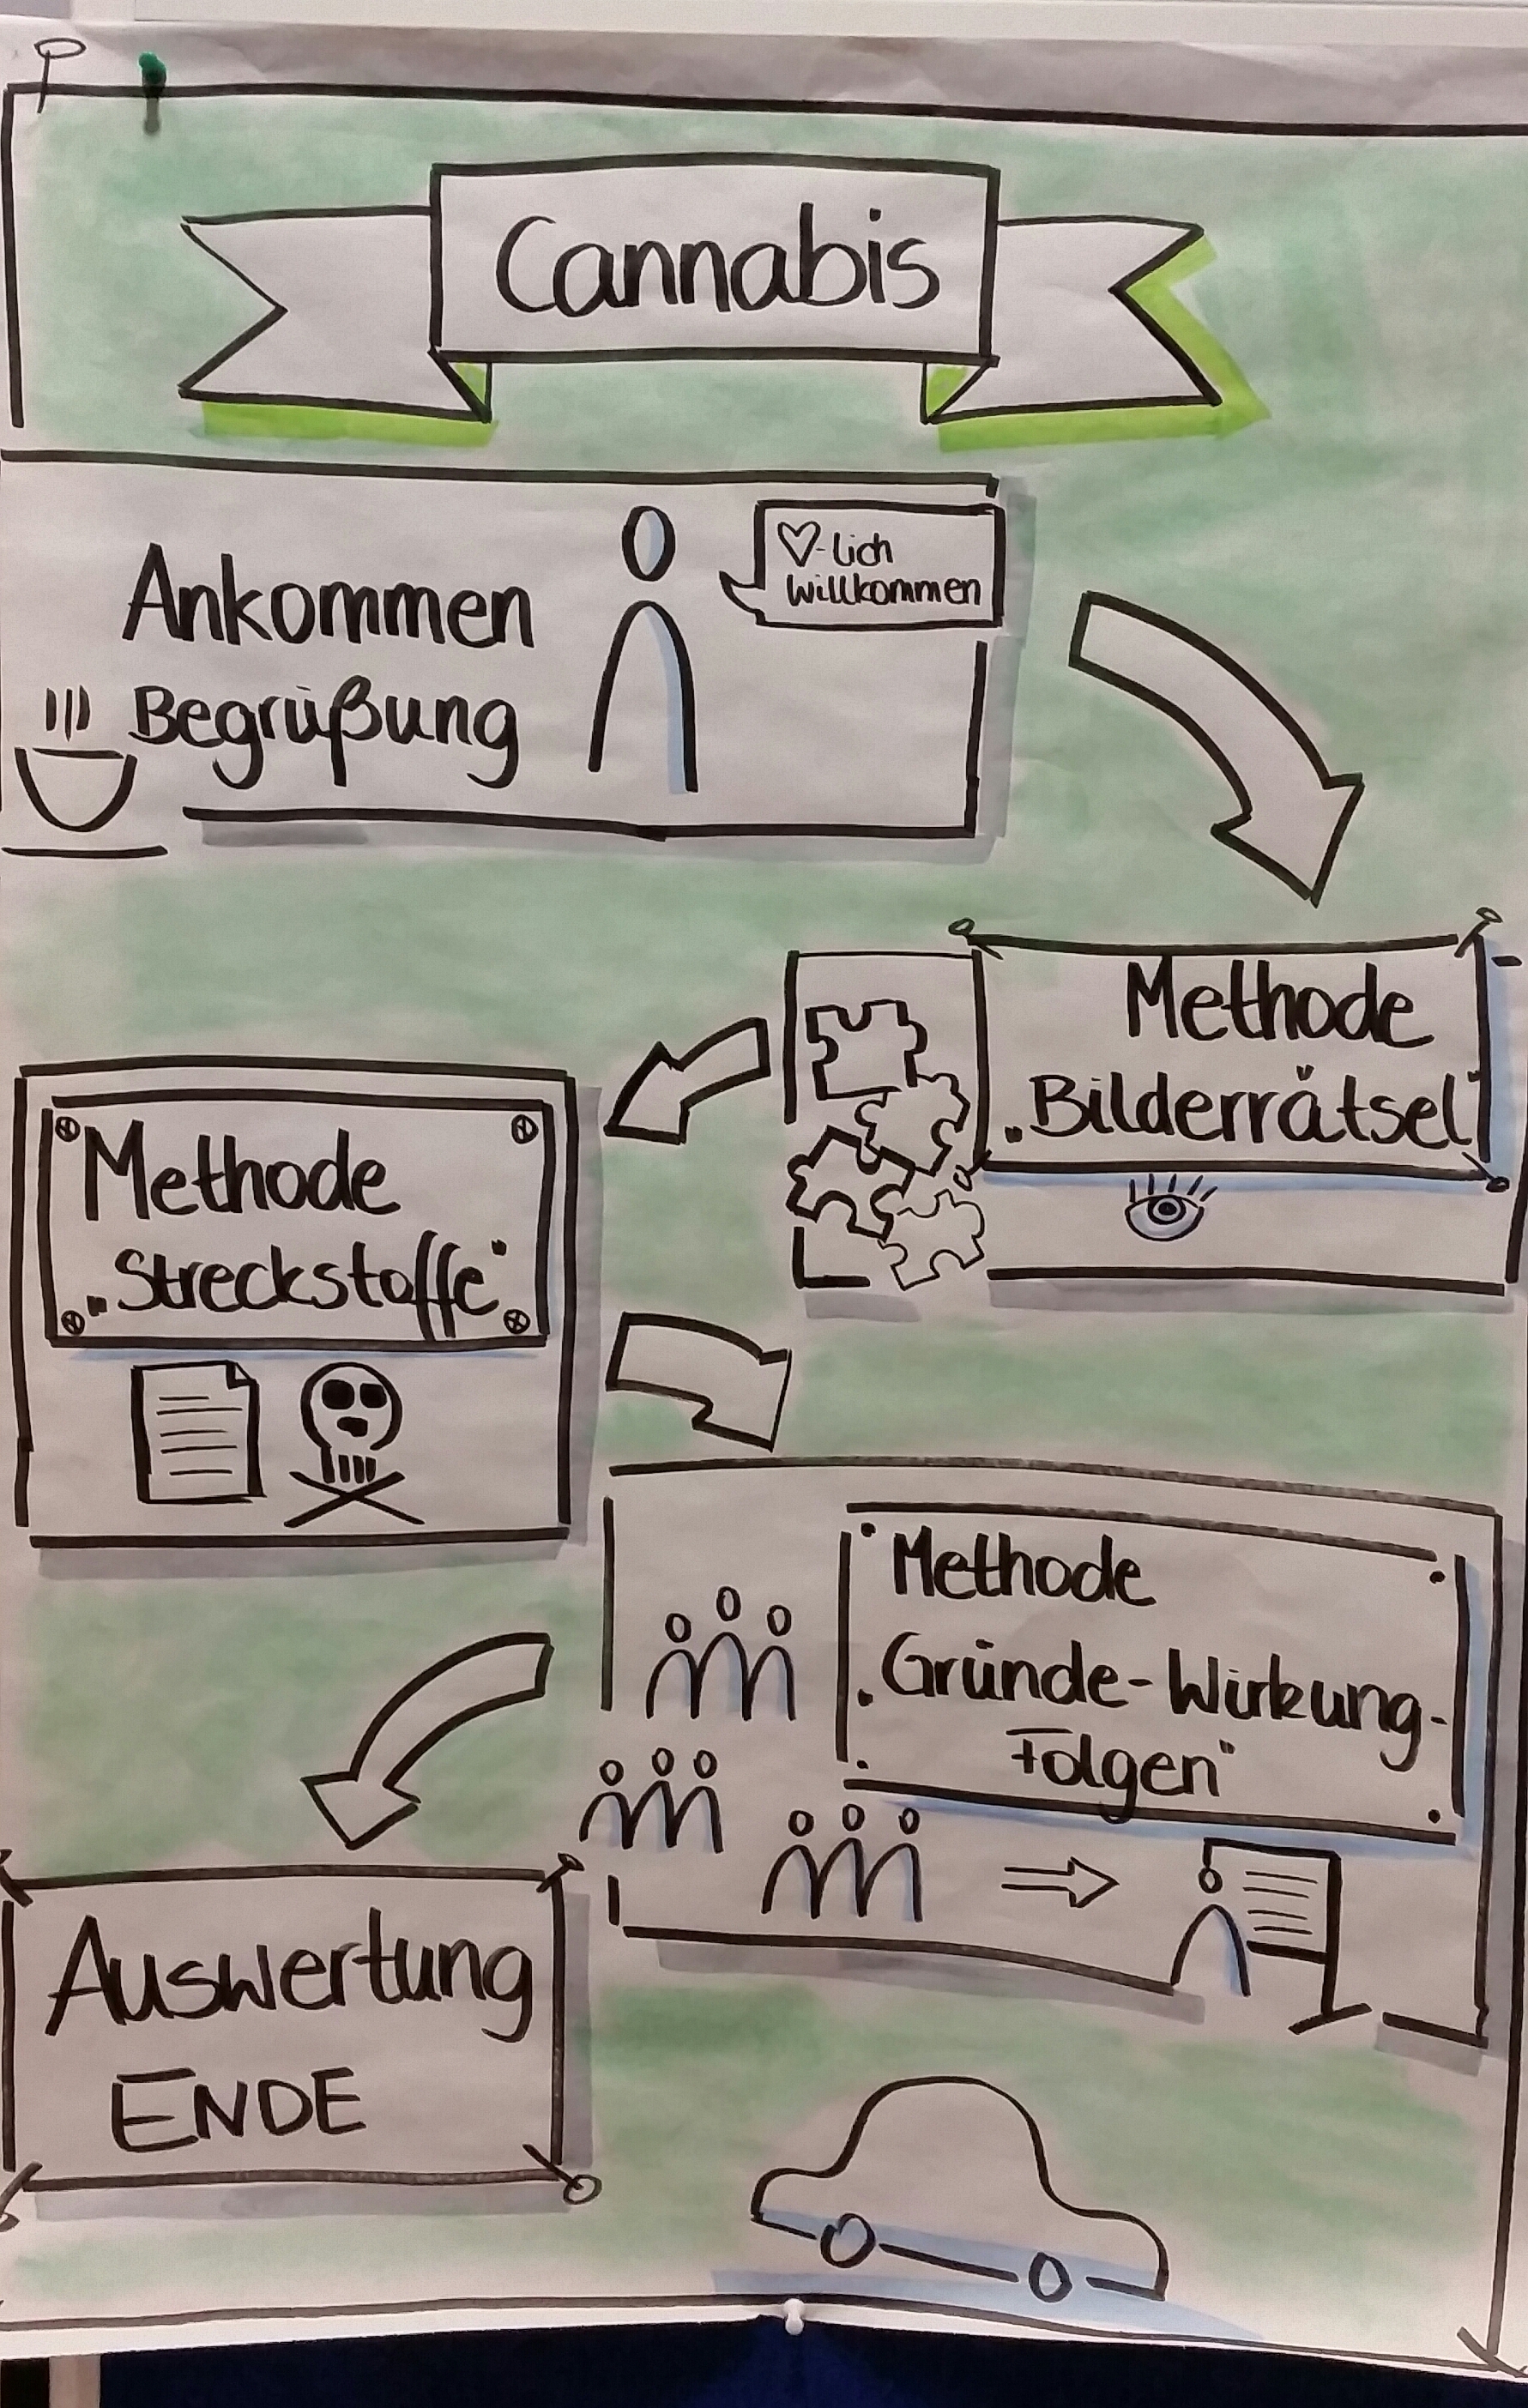 Cannabis
Ankommen
Begrüßung
♡-lich
Willkommen
Methode
„Bilderrätsel"
Methode
„Streckstoffe"
Methode
„Gründe-Wirkung-
Folgen"
Auswertung
ENDE